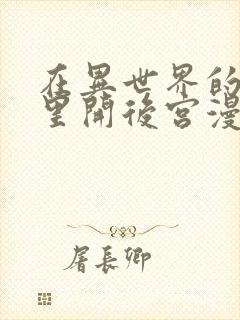 在異世界的
里開後宮漫
屠長卿